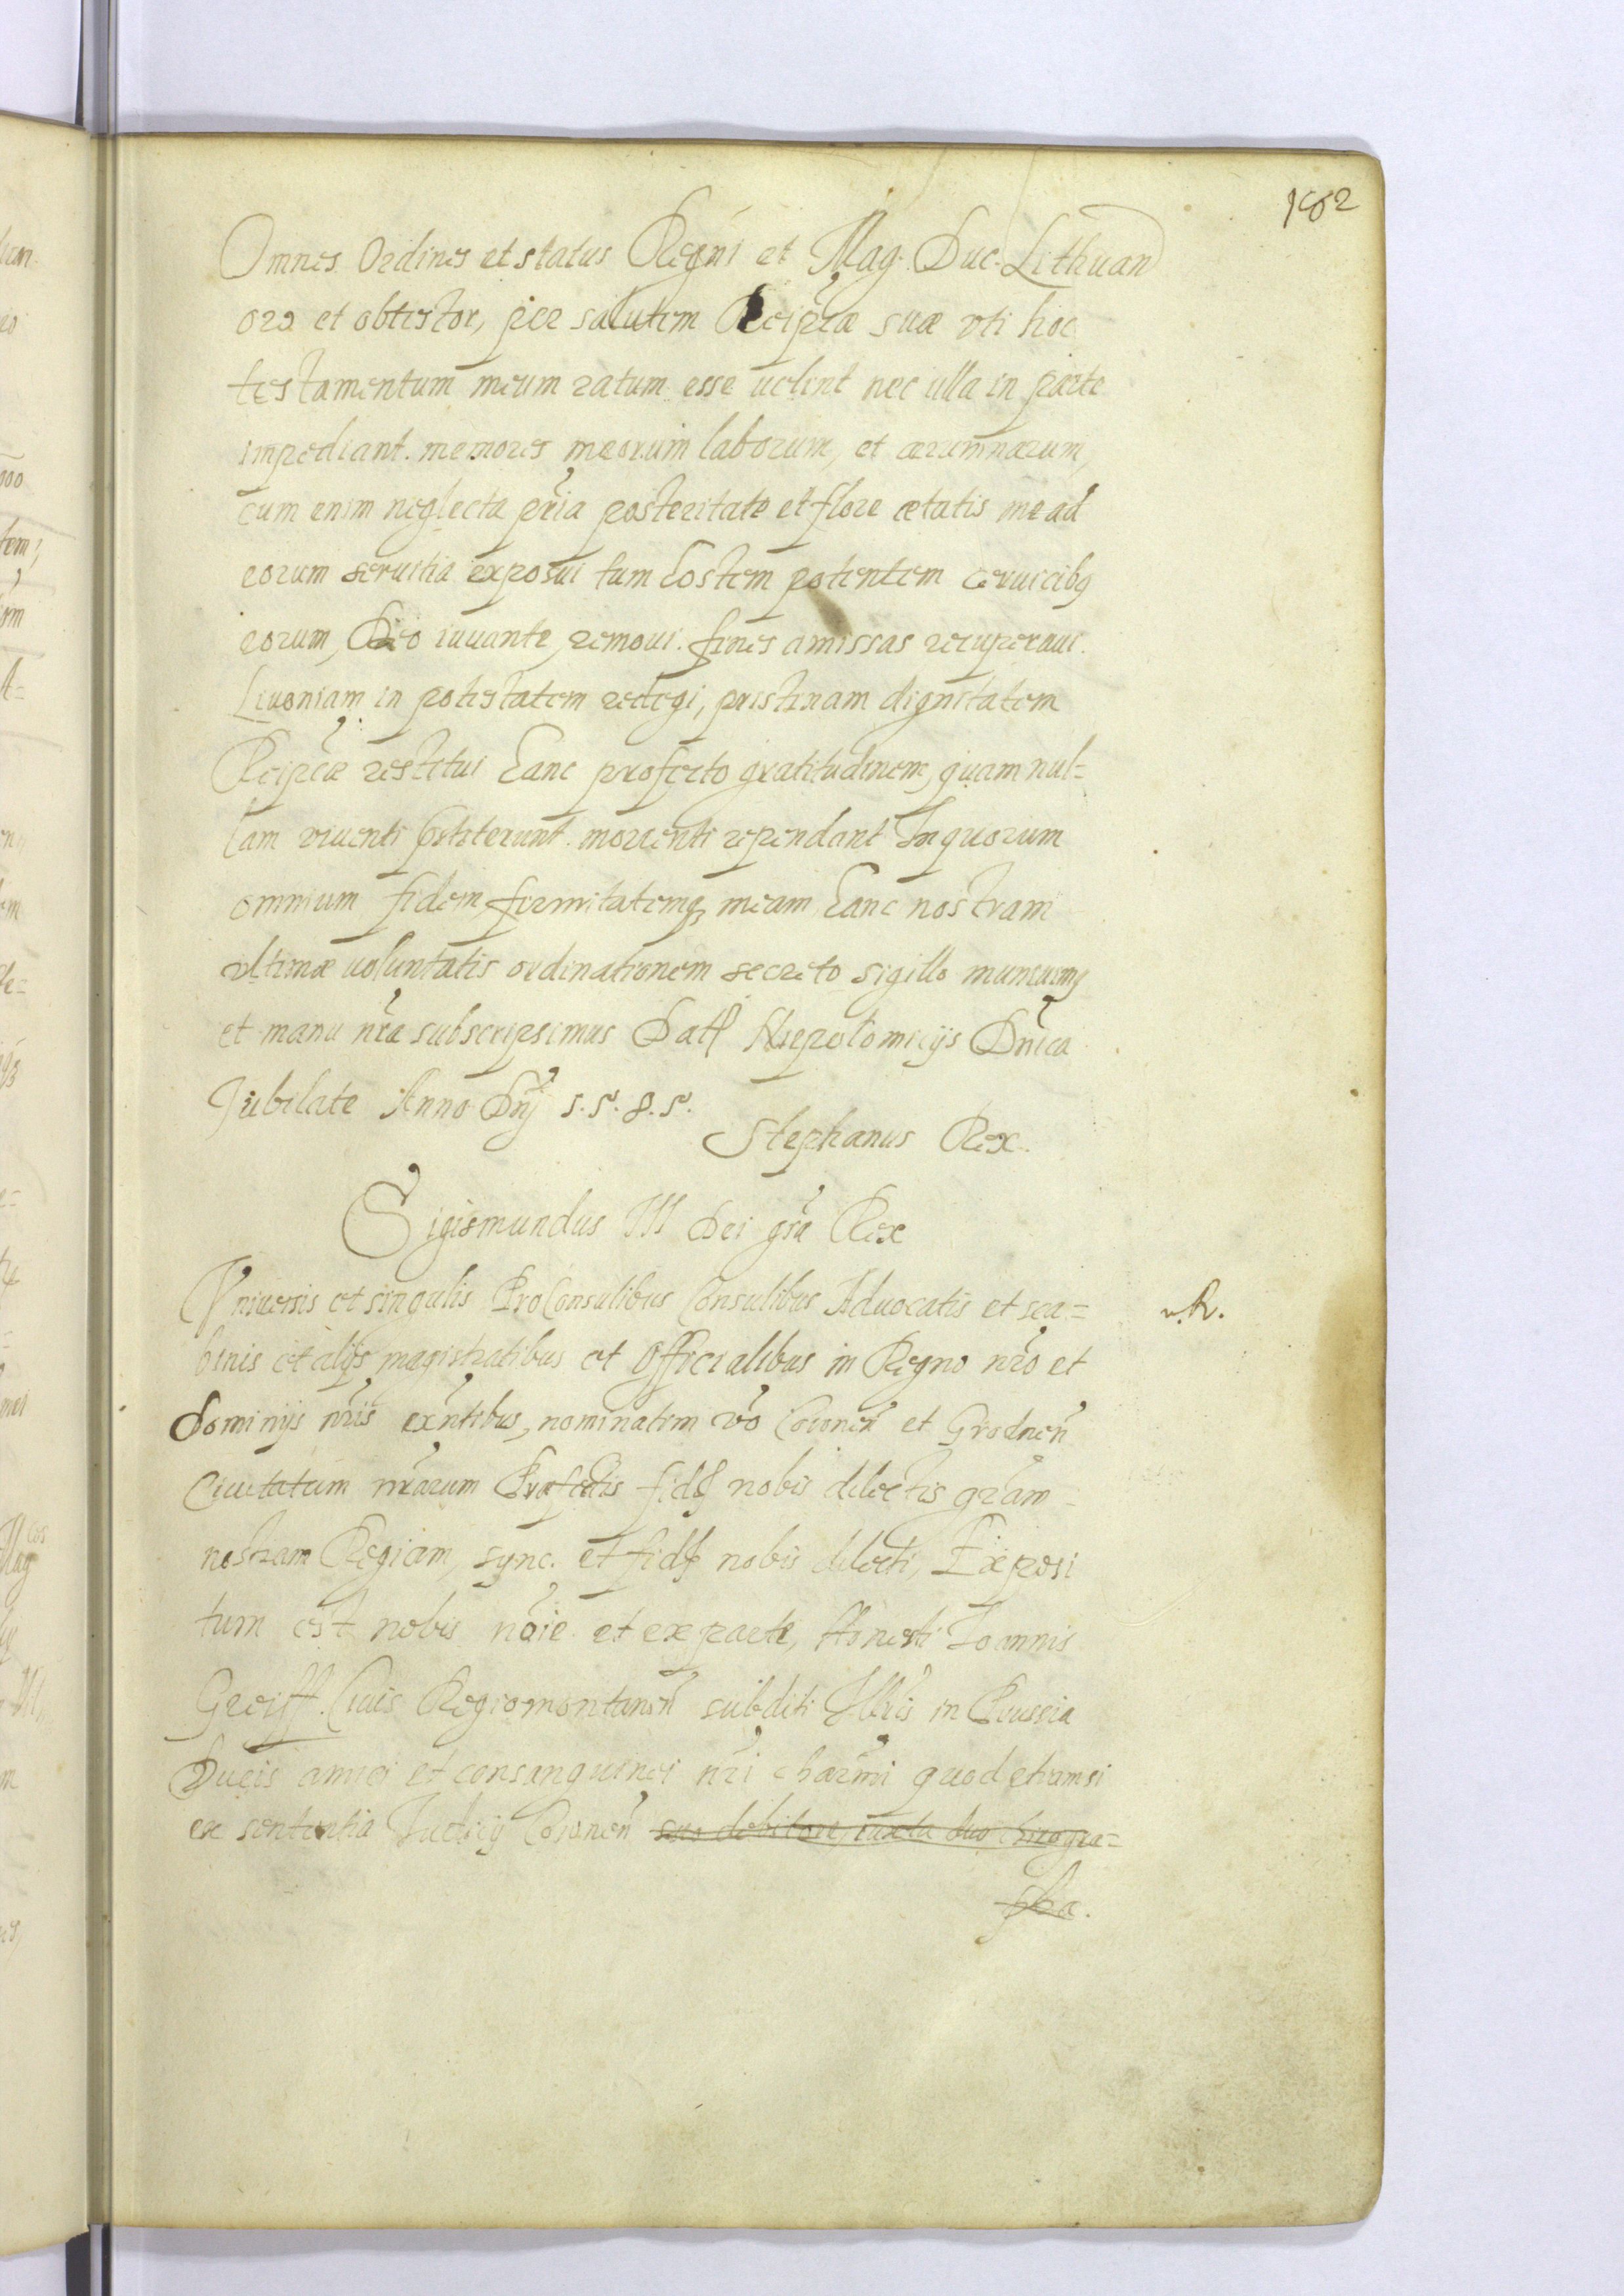 182
Omnes Ordines et status Regni et Mag. Duc. Lithuan
oro et obtestor, per salutem Reipcæ suæ vti hoc
testamentum meum ratum esse uelint nec ulla in parte
impediant. memores meorum laborum, et ærumnarum,
cum enim neglecta pria posteritate et flore ætatis me ad
eorum seruitia exposui tum hostem potentem ceruicibq
eorum, Deo iuuante, remoui. fines amissas recuperaui.
Liuoniam in potestatem redegi, pristinam dignitatem
Reipcæ restitui hanc profecto gratitudinem, quam nul=
lam viuenti pstiterunt. morienti rependant In quorum
omnium fidem firmitatemq meam hanc nostram
vltimæ uoluntatis ordinationem secreto sigillo muniuimq
et manu nra subscripsimus Dat Niepolomicijs Dnica
Jubilate Anno Dnj 1.5.8.5.
Stephanus Rex.
Sigismundus III Dei gra Rex
Vniuersis et singulis ProConsulibus Consulibus Aduocatis et sca=
binis et alijs magistratibus et Officialibus in Regno nro et
Dominijs nris exntibus, nominatim vo Couonen et Grodnen
Ciuitatum nrarum Præfectis fidl nobis dilectis gram
nostram Regiam, sync. et fidl nobis dilecti, Exposi
tum est nobis noie et ex parte, Honesti Joannis
Greiff. Ciuis Regiomontanen subditi Illris in Prussia
Ducis amici et consanguinei nri charmi quod etiamsi
ex sententia Iudicij Couonen suo debitore, iuxta duo chirogra=
pha.